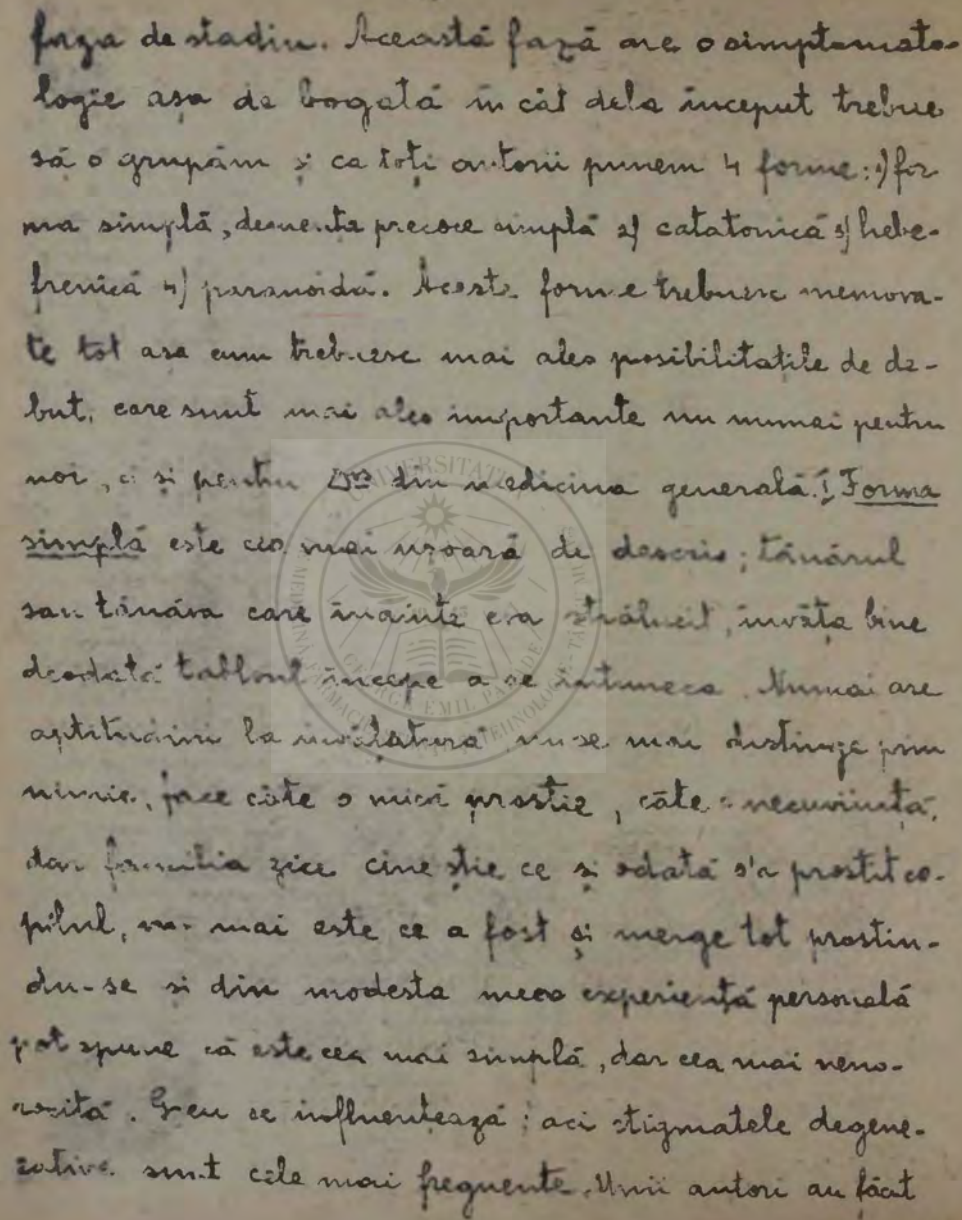 faza de stadiu. Această fază are o simptomato-
logie așa de bogată în cât dela început trebue
să o grupăm și ca toți autorii punem 4 forme: 1) for
ma simplă, demența precoce simplă 2) catatonică 3) hebe-
frenică 4) paranoidă. Aceste forme trebuesc memora-
te tot asa cum trebuesc mai ales posibilitatile de de-
but, care sunt mai ales importante nu numai pentru
noi, ci și pentru din medicina generală. I Forma
simplă este cea mai ușoară de descris; tânărul
sau tânăra care înainte era strălucit, învăța bine
deodată tabloul începe a se întuneca. Numai are
aptitudini la învățătură nu se mai distinge prin
nimic, face câte o mică prostie, câte o necuviință,
dar familia zice cine știe ce și odată s'a prostit co-
pilul, nu mai este ce a fost și merge tot prostin-
du-se si din modesta mea experiență personală
pot spune că este cea mai simplă, dar cea mai neno-
rocită. Greu se influențează; aci stigmatele degene-
rative sunt cele mai frequente. Unii autori au făcut